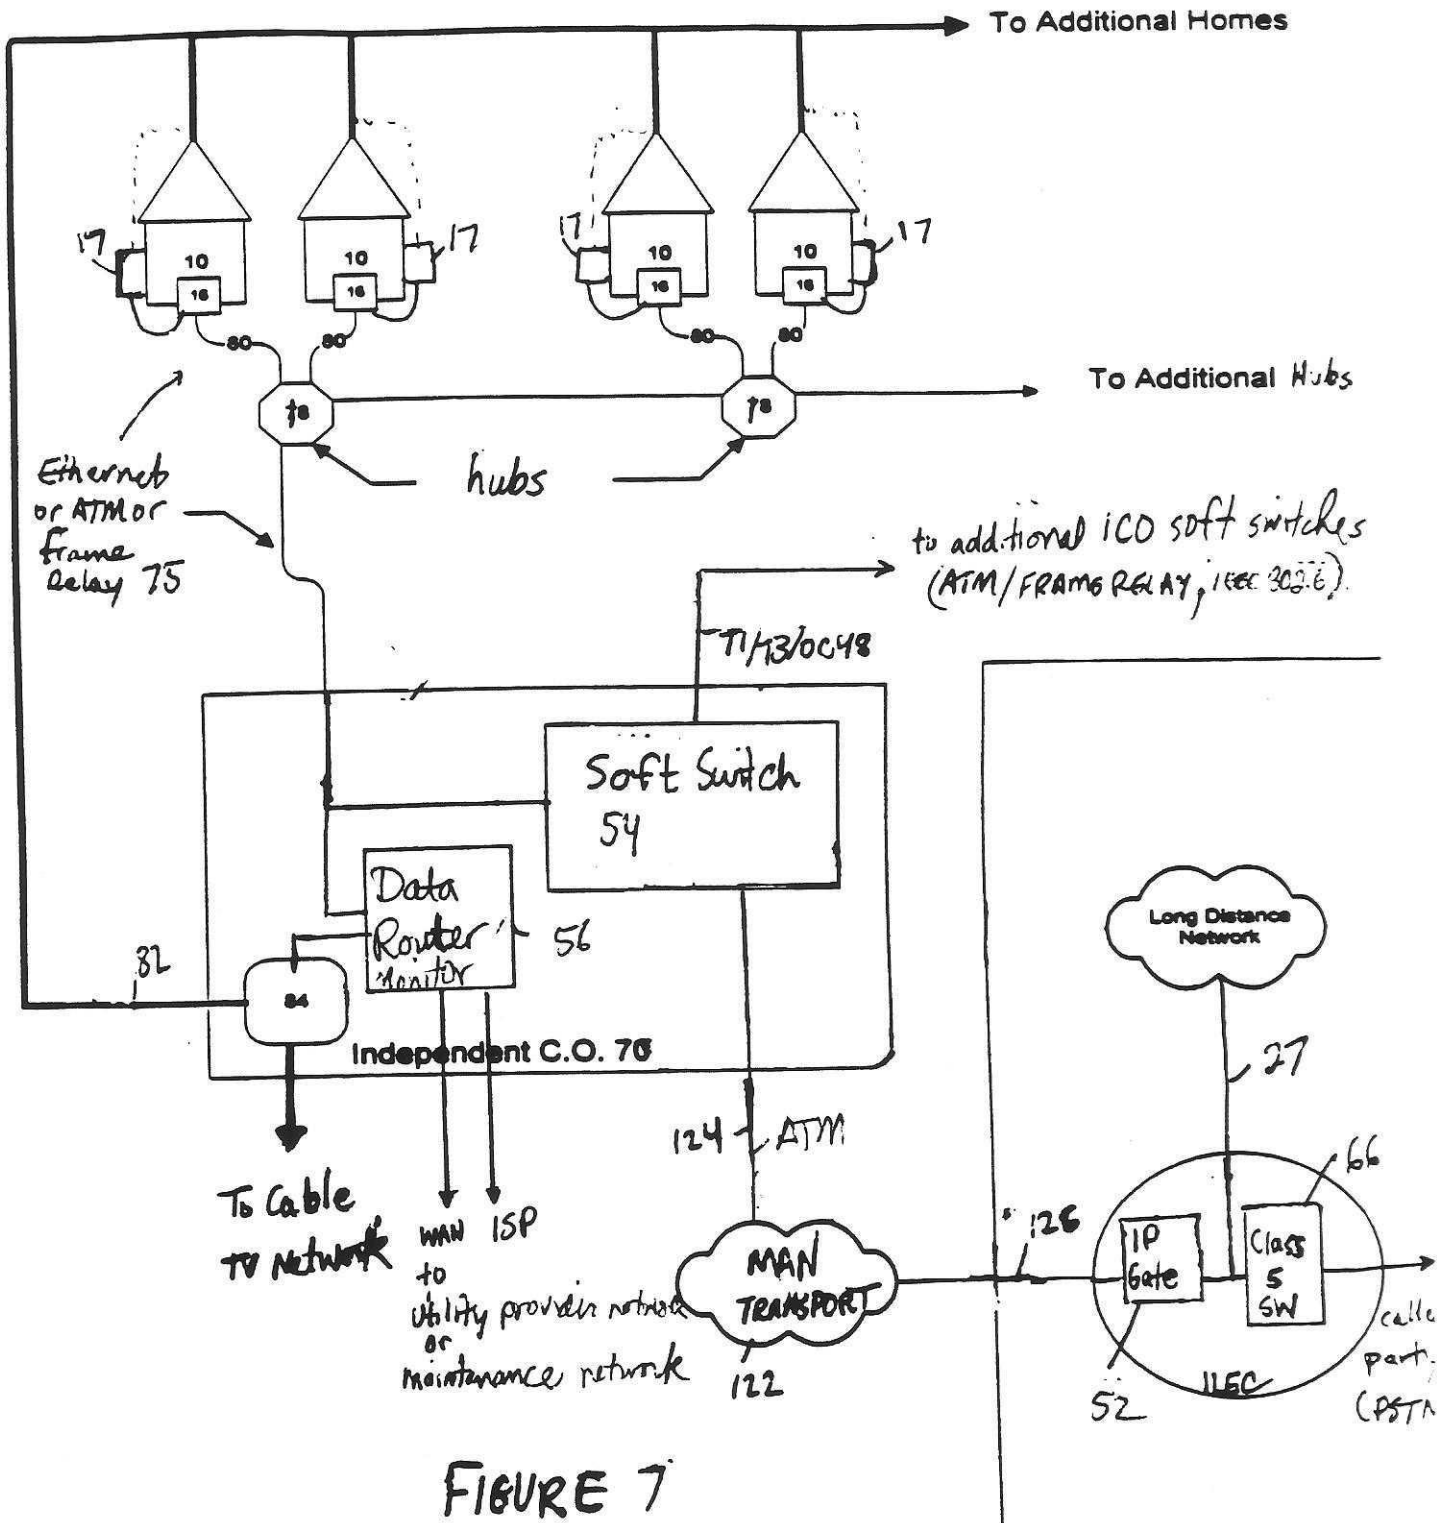 To Additional Homes
17
10
16
10
16
17
17
10
16
10
16
17
80
80
80
80
To Additional Hubs
78
78
hubs
Ethernet
or ATM or
frame
Relay 75
to additional ICO soft switches
(ATM/FRAME RELAY, IEEE 302.6)
T1/T3/OC48
Soft Switch
54
Data
Router
Monitor
56
82
84
Independent C.O. 76
Long Distance
Network
27
124
ATM
66
To Cable
TV Network
WAN
ISP
to
utility provider network
or
maintenance network
MAN
TRANSPORT
122
126
IP
Gate
Class
5
SW
52
ILEC
calle
part.
(PSTN
FIGURE 7